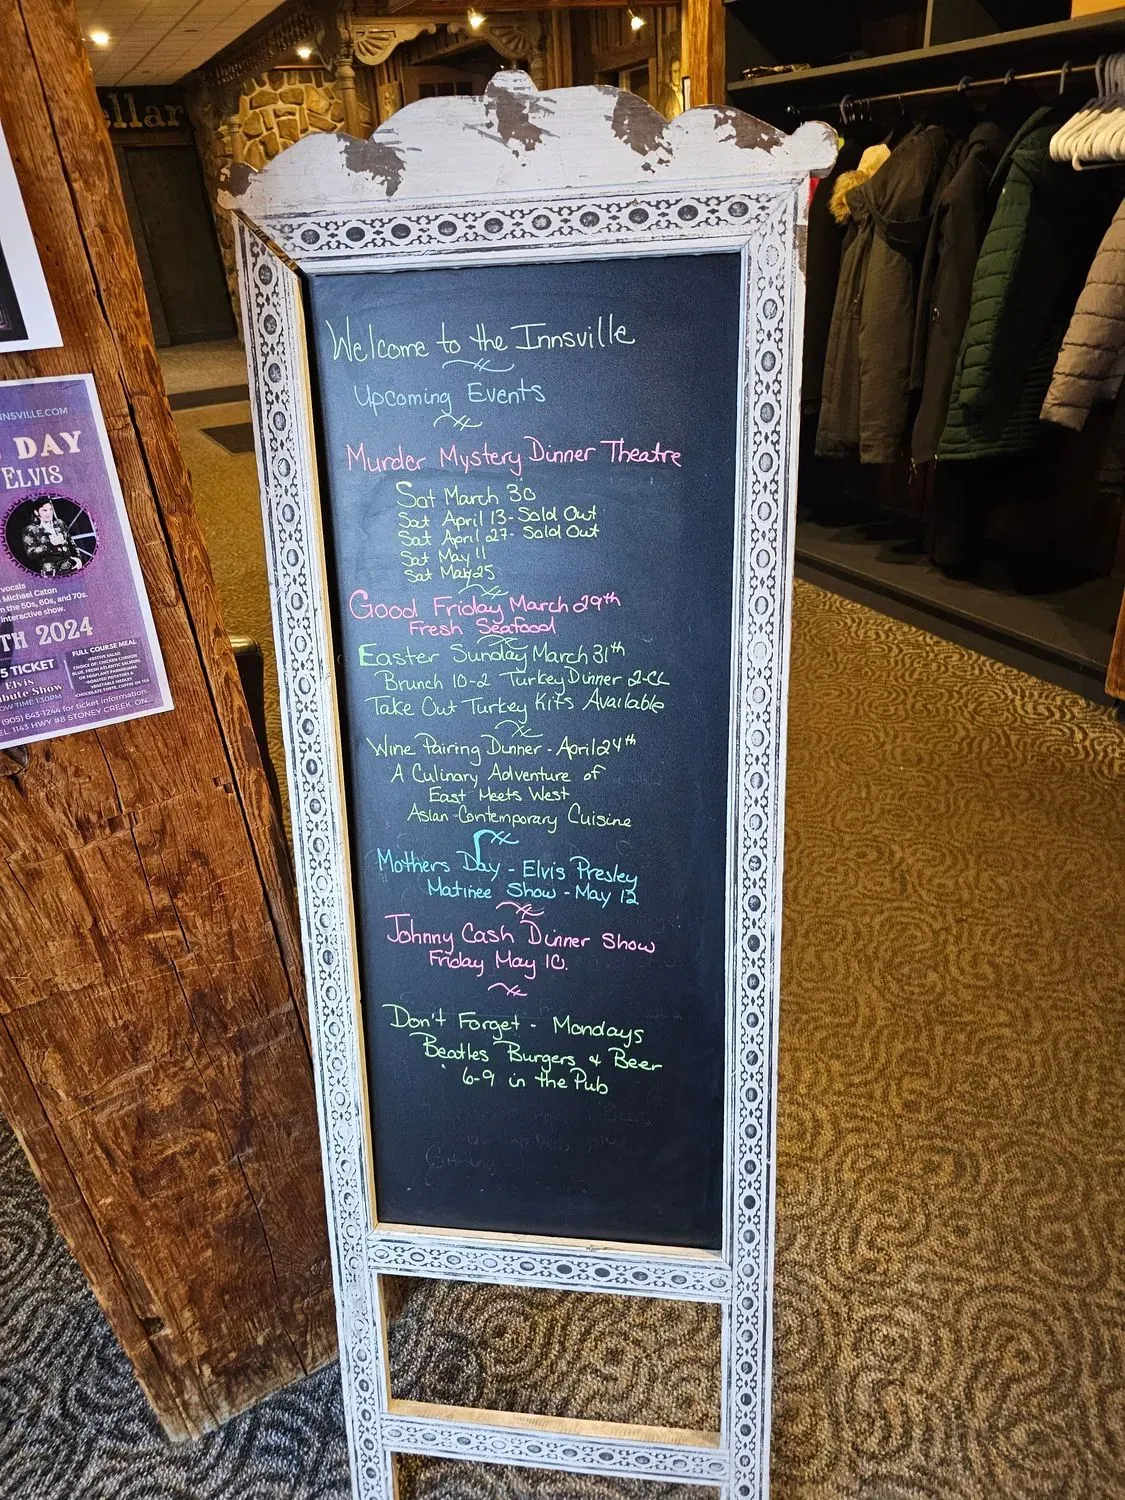 ellar
Welcome to the Innsville
Upcoming Events
Murder Mystery Dinner Theatre
Sat March 30
Sat April 13 - Sold Out
Sat April 27 - Sold Out
Sat May 11
Sat May 25
Good Friday March 29th
Fresh Seafood
Easter Sunday March 31th
Brunch 10-2 Turkey Dinner 2-CL
Take Out Turkey Kits Available
Wine Pairing Dinner - April 24th
A Culinary Adventure of
East Meets West
Asian-Contemporary Cuisine
Mothers Day - Elvis Presley
Matinee Show - May 12
Johnny Cash Dinner Show
Friday May 10.
Don't Forget - Mondays
Beatles Burgers & Beer
6-9 in the Pub
NNSVILLE.COM
DAY
ELVIS
vocals
Michael Caton
m the 50s, 60s, and 70s.
interactive show.
TH 2024
5 TICKET
Elvis
bute Show
OW TIME 1:30PM
FULL COURSE MEAL
•FESTIVE SALAD
CHOICE OF: CHICKEN CORDON
BLUE, FRESH ATLANTIC SALMON,
OR EGGPLANT PARMIGIANA
•ROASTED POTATOES &
VEGETABLE MEDLEY
•CHOCOLATE TORTE, COFFEE OR TEA
(905) 643-1244 for ticket information.
EL 1143 HWY #8 STONEY CREEK, ON.